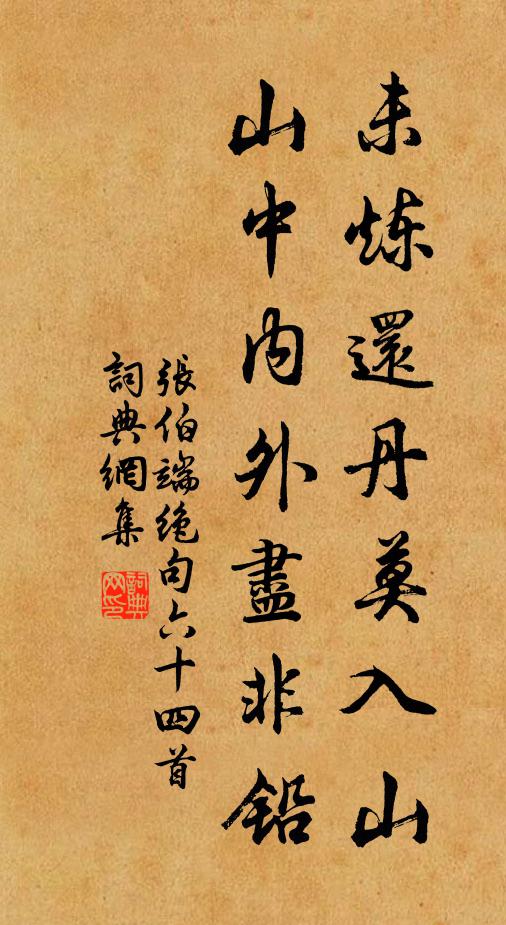 未炼還丹莫入山
山中内外盡非鉛
張伯端绝句六十四首
詞典網集
詞典
网印